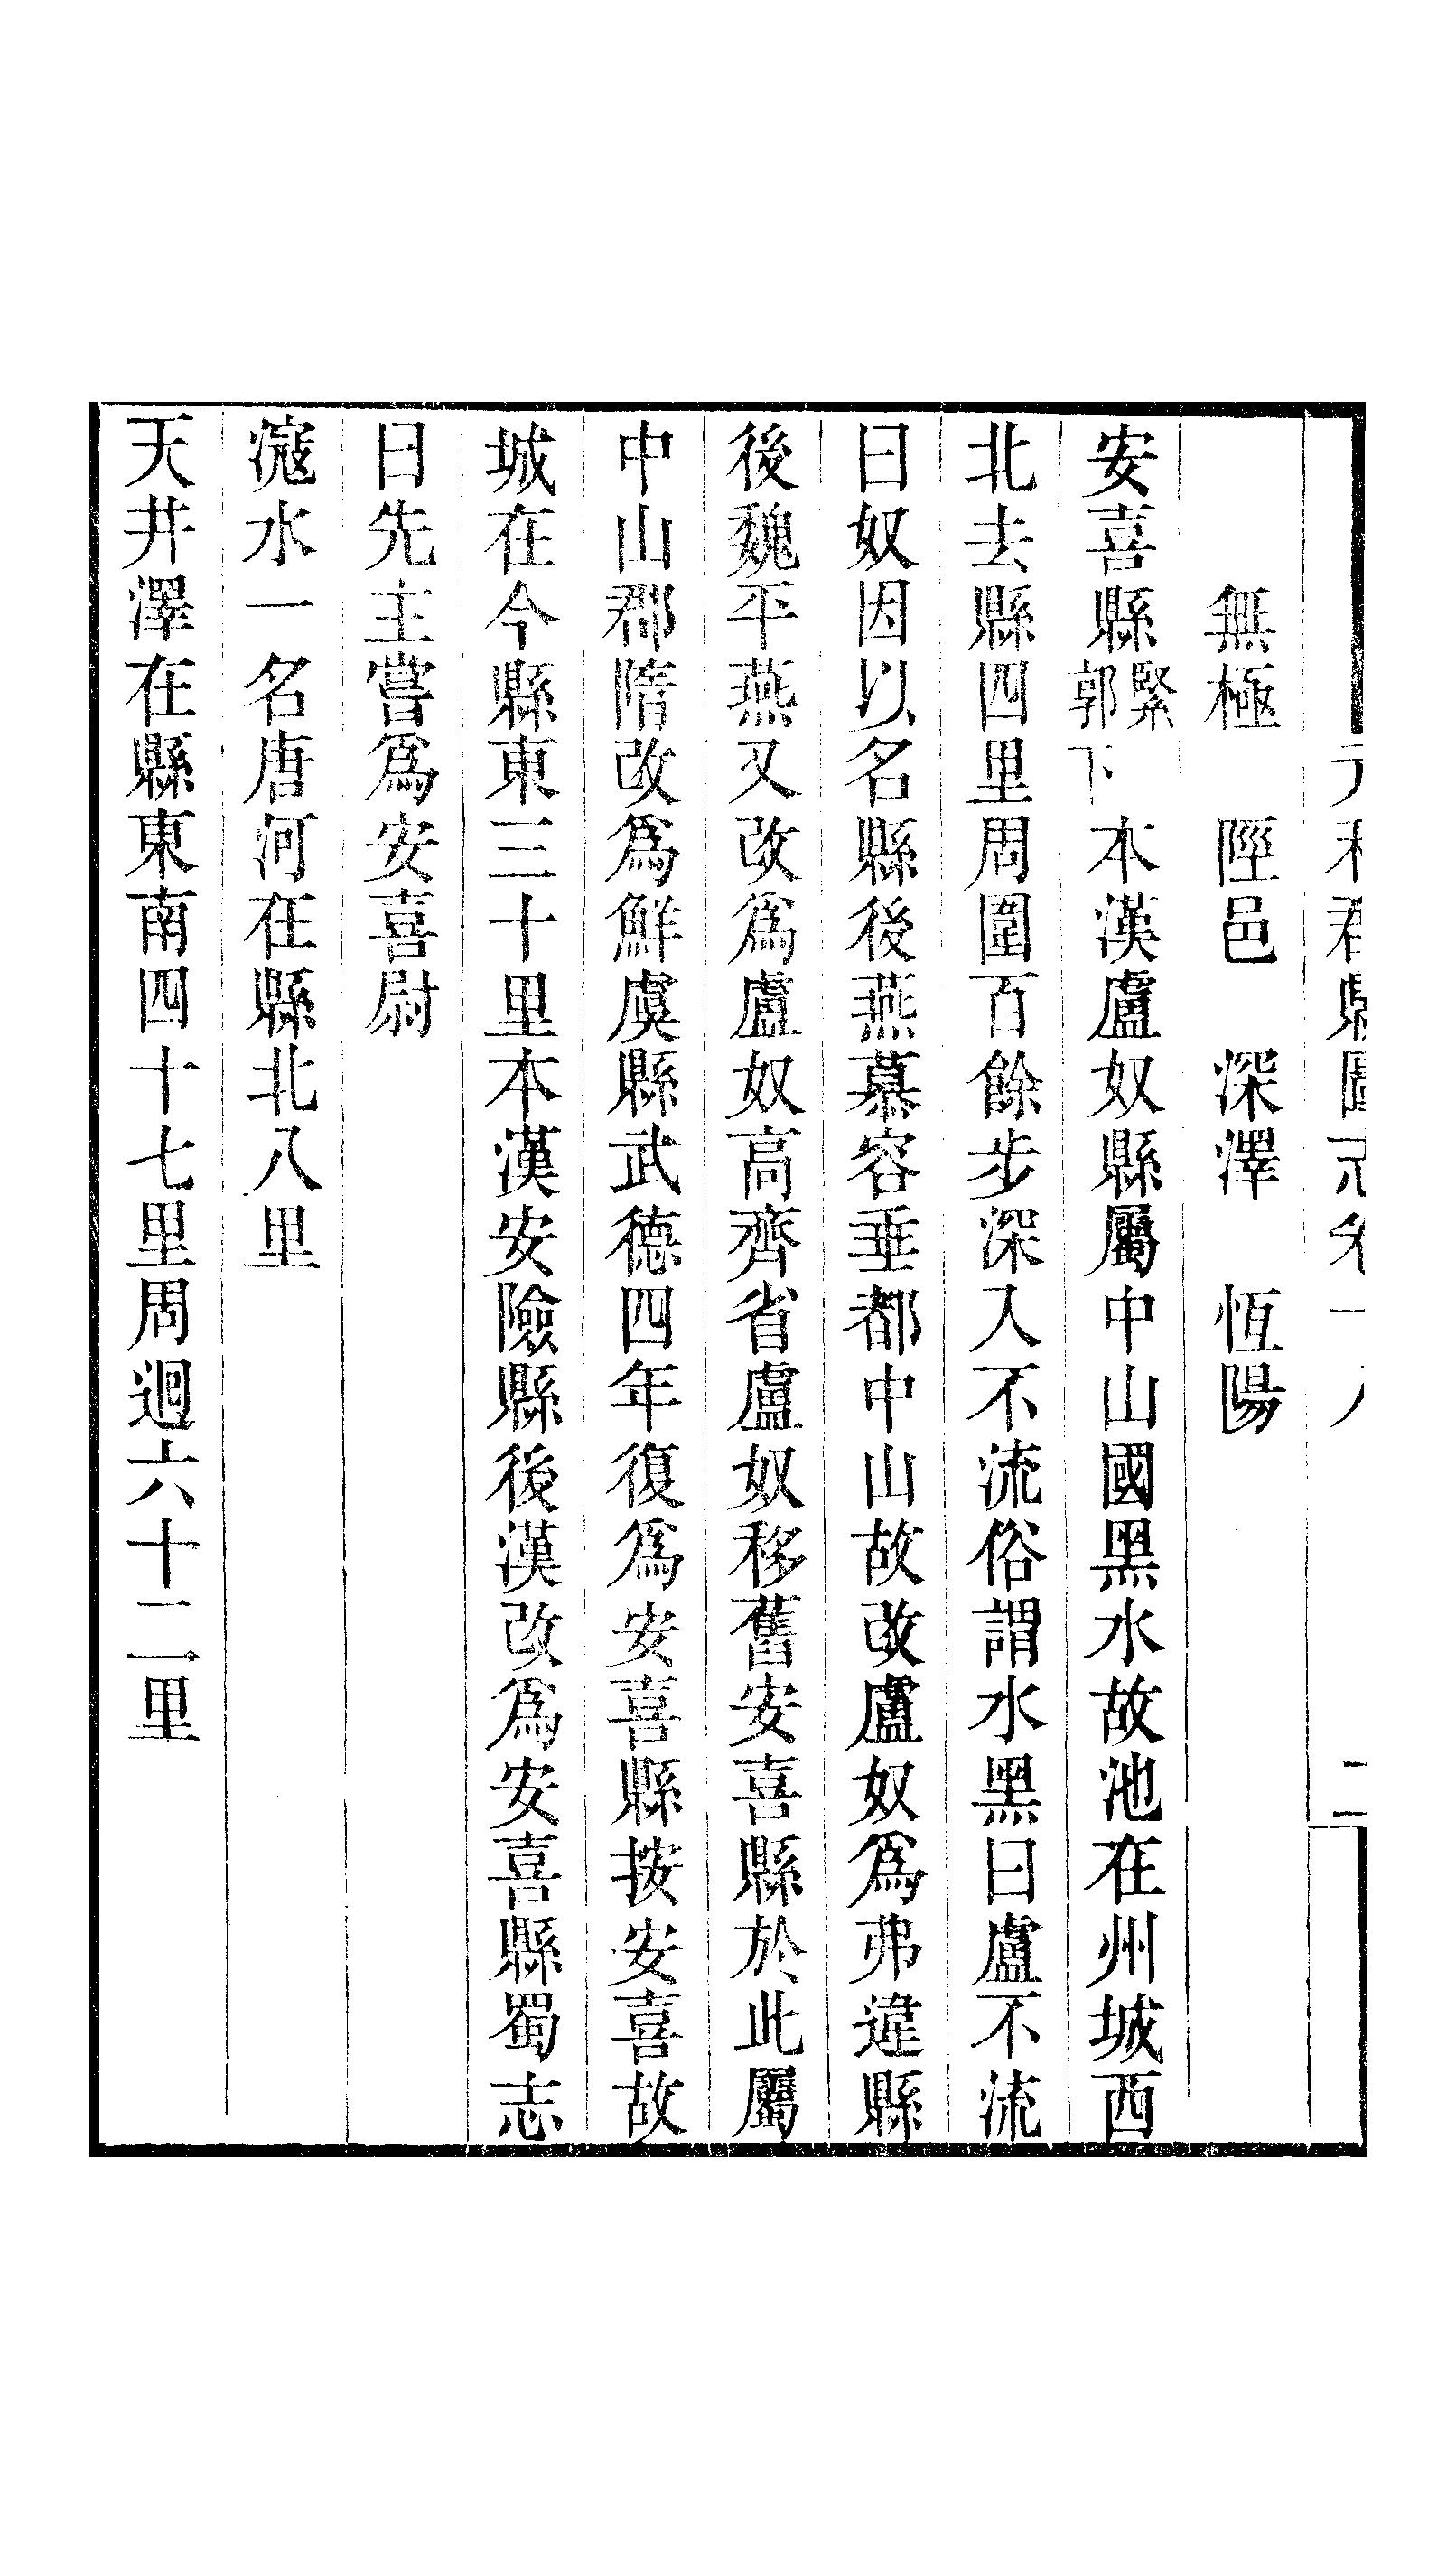 無極　陘邑　深澤　恆陽
安喜縣緊郭下本漢盧奴縣屬中山國黑水故池在州城西
北去縣四里周圍百餘步深入不流俗謂水黑曰盧不流
曰奴因以名縣後燕慕容垂都中山故改盧奴爲弗違縣
後魏平燕又改爲盧奴高齊省盧奴移舊安喜縣於此屬
中山郡隋改爲鮮虞縣武德四年復爲安喜縣按安喜故
城在今縣東三十里本漢安險縣後漢改爲安喜縣蜀志
曰先主嘗爲安喜尉
滱水一名唐河在縣北八里
天井澤在縣東南四十七里周迴六十二里